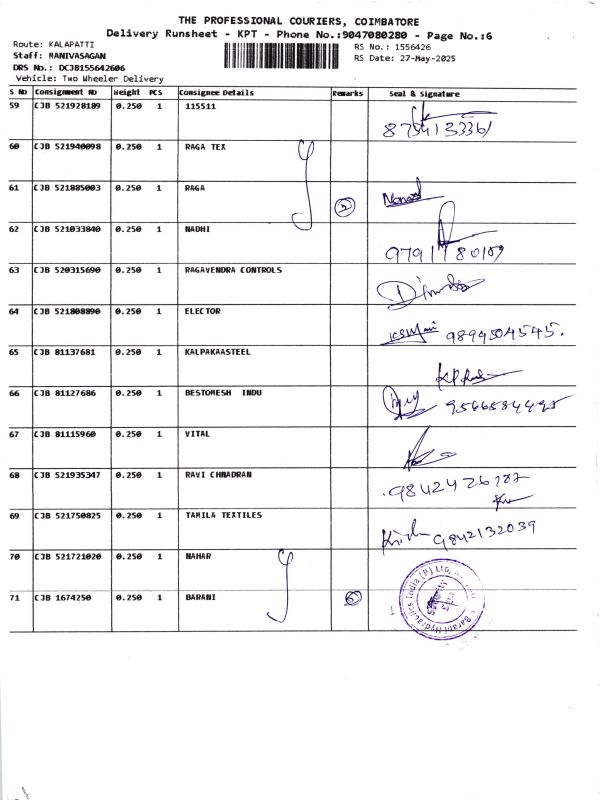 THE PROFESSIONAL COURIERS, COIMBATORE
Delivery Runsheet - KPT - Phone No.:9047080280 - Page No.:6
Route: KALAPATTI
RS No.: 1556426
Staff: MANIVASAGAN
RS Date: 27-May-2025
DRS No.: DCJB155642606
Vehicle: Two Wheeler Delivery
S No Consignment No Weight PCS Consignee Details Remarks Seal & Signature
59 CJB 521928189 0.250 1 115511
60 CJB 521940098 0.250 1 RAGA TEX
61 CJB 521885003 0.250 1 RAGA
62 CJB 521033840 0.250 1 NADHI
63 CJB 520315690 0.250 1 RAGAVENDRA CONTROLS
64 CJB 521808890 0.250 1 ELECTOR 9894504545.
65 CJB 81137681 0.250 1 KALPAKAASTEEL
66 CJB 81127686 0.250 1 BESTOMESH INDU
67 CJB 81115960 0.250 1 VITAL
68 CJB 521935347 0.250 1 RAVI CHNADRAN
69 CJB 521750825 0.250 1 TAMILA TEXTILES 9842132039
70 CJB 521721020 0.250 1 NAHAR
71 CJB 1674250 0.250 1 BARANI
Barani Hydraulics India (P) Ltd.
Security